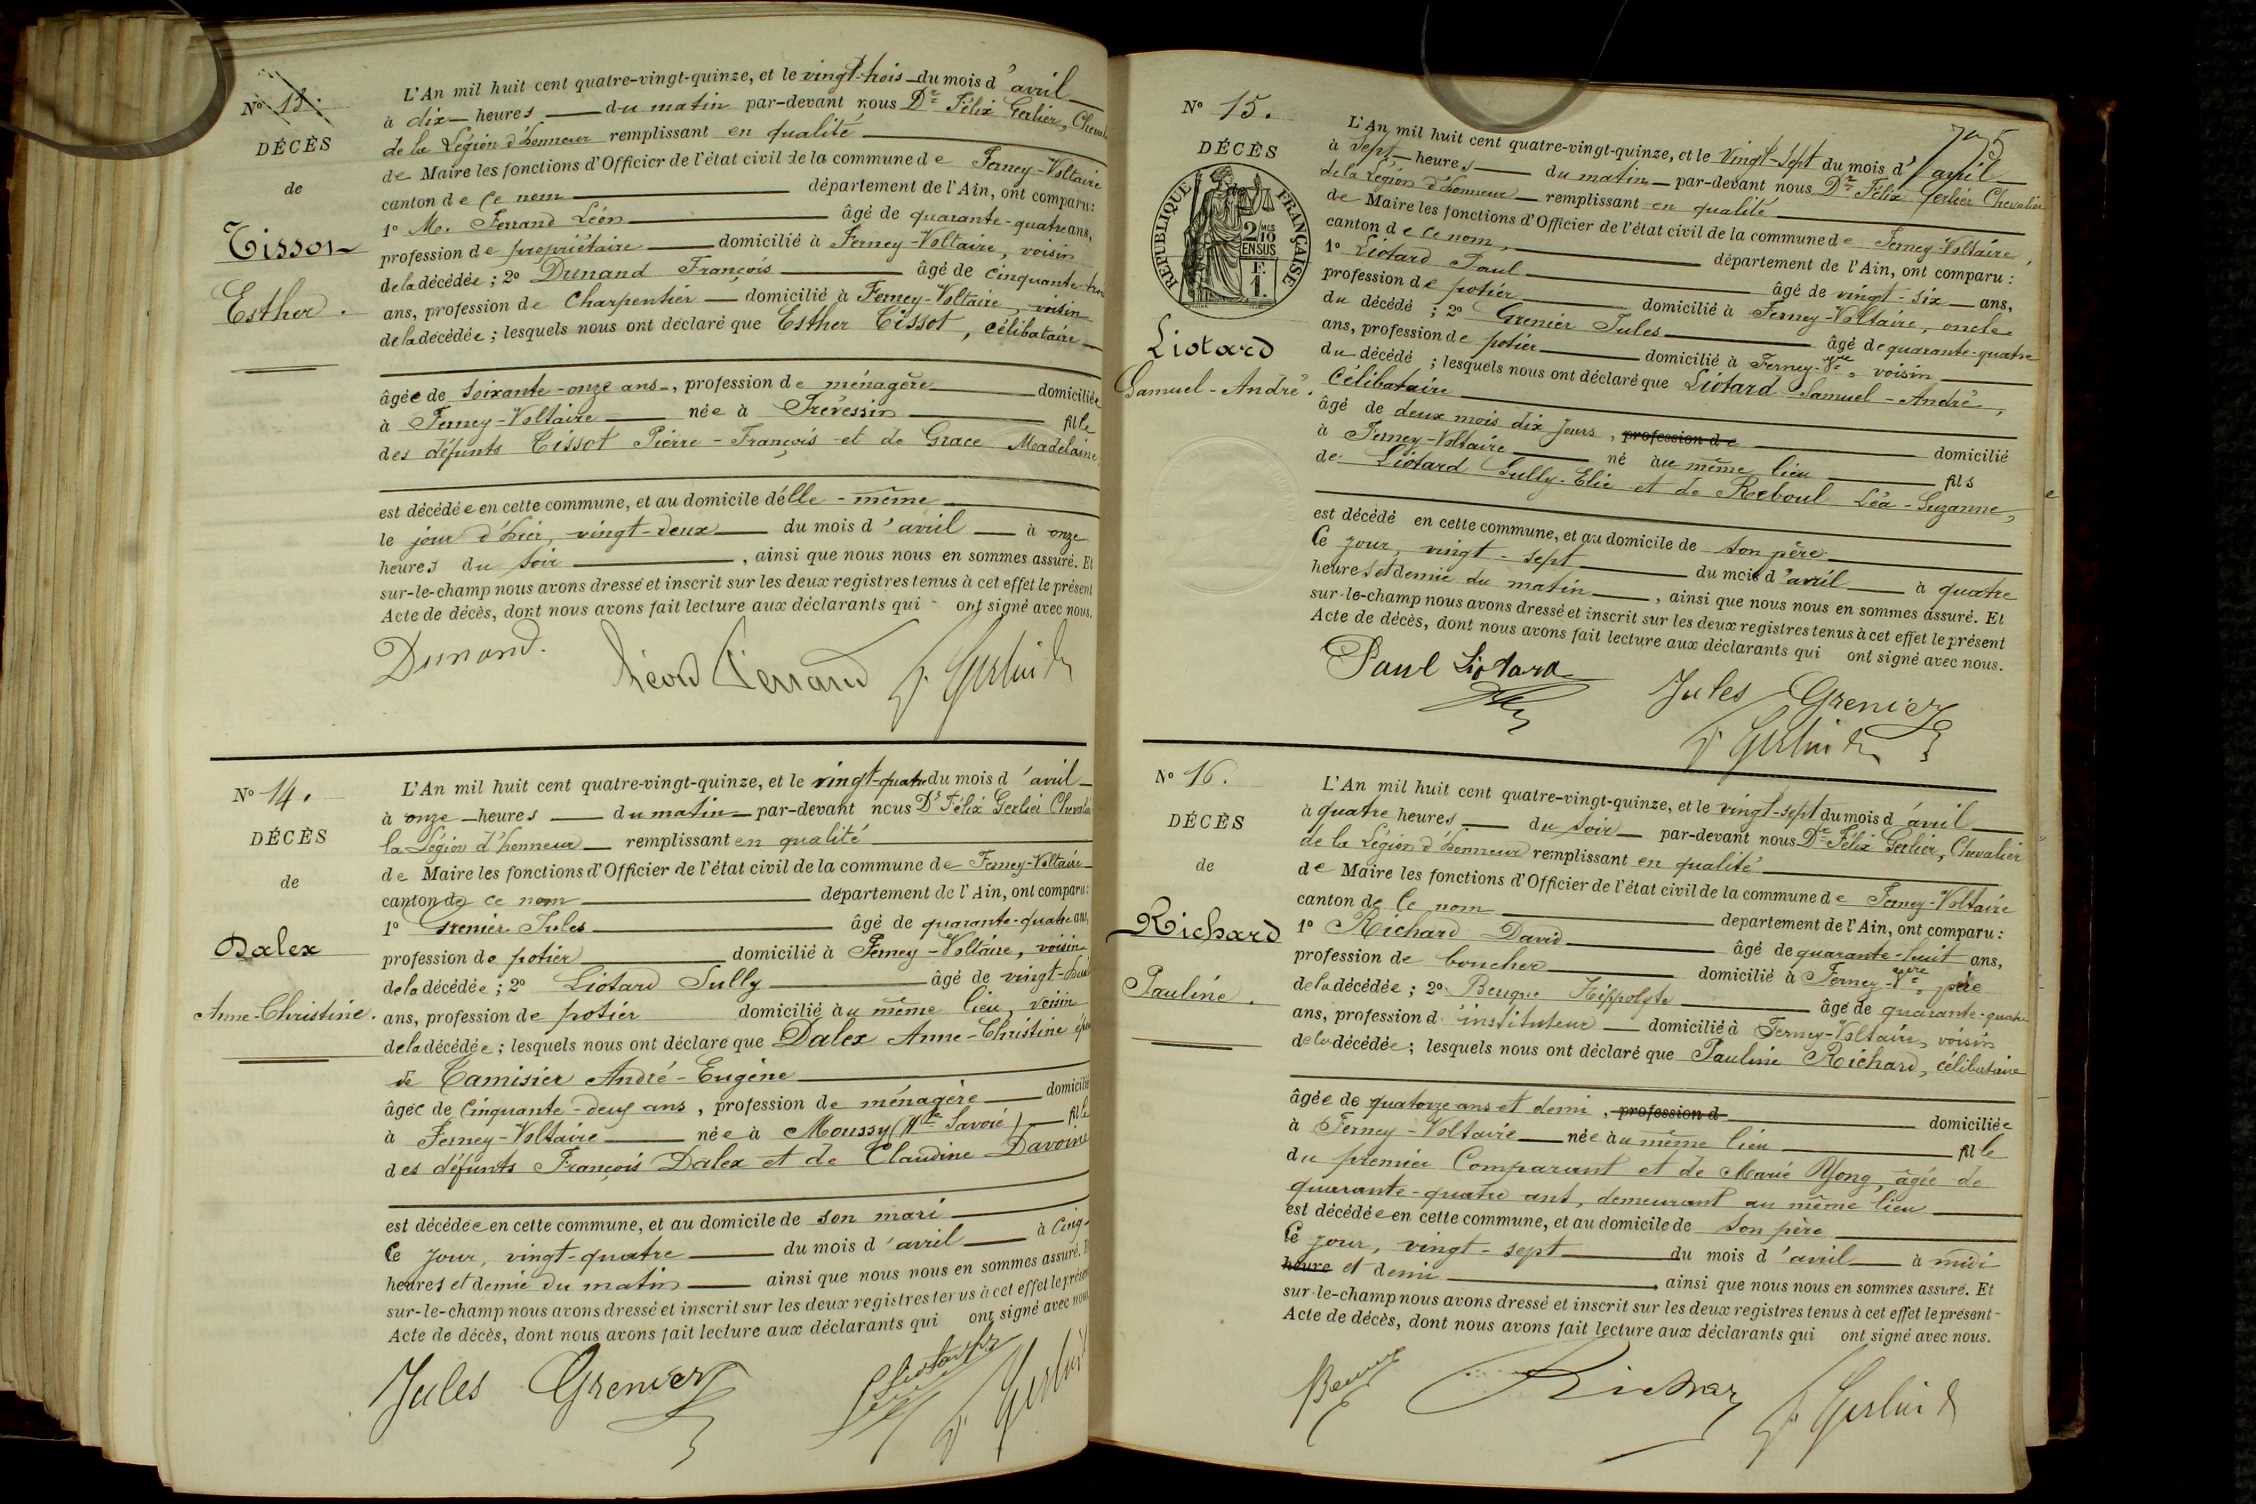 N° 13.
DÉCÈS
de
Tissot
Esther.
L'An mil huit cent quatre-vingt-quinze, et le vingt-trois du mois d'avril
à dix heures du matin par-devant nous Dr Félix Gerlier, Cheval
de la Légion d'honneur remplissant en qualité
de Maire les fonctions d'Officier de l'état civil de la commune de Ferney-Voltaire
canton de ce nom département de l'Ain, ont comparu:
1° M. Ferrand Léon âgé de quarante-quatre ans,
profession de propriétaire domicilié à Ferney-Voltaire, voisin
de la décédée; 2° Dunand François âgé de cinquante-trois
ans, profession de charpentier domicilié à Ferney-Voltaire, voisin
de la décédée; lesquels nous ont déclaré que Esther Tissot, célibataire
âgée de soixante-onze ans, profession de ménagère domiciliée
à Ferney-Voltaire née à Prévessin fille
des défunts Tissot Pierre-François et de Grace Madelaine,
est décédée en cette commune, et au domicile d'elle-même
le jour d'hier, vingt-deux du mois d'avril à onze
heures du soir, ainsi que nous nous en sommes assuré. Et
sur-le-champ nous avons dressé et inscrit sur les deux registres tenus à cet effet le présent
Acte de décès, dont nous avons fait lecture aux déclarants qui ont signé avec nous.
Dunand. Léon Ferrand F. Gerlier Dr
N° 14.
DÉCÈS
de
Dalex
Anne-Christine.
L'An mil huit cent quatre-vingt-quinze, et le vingt-quatre du mois d'avril
à onze heures du matin par-devant nous Dr Félix Gerlier Chevalier
la Légion d'honneur remplissant en qualité
de Maire les fonctions d'Officier de l'état civil de la commune de Ferney-Voltaire
canton de ce nom département de l'Ain, ont comparu:
1° Grenier Jules âgé de quarante-quatre ans,
profession de potier domicilié à Ferney-Voltaire, voisin
de la décédée; 2° Liotard Sully âgé de vingt-huit
ans, profession de potier domicilié au même lieu, voisin
de la décédée; lesquels nous ont déclaré que Dalex Anne-Christine épouse
de Tamisier André-Eugène
âgée de cinquante-deux ans, profession de ménagère domiciliée
à Ferney-Voltaire née à Moussy (Hte Savoie) fille
des défunts François Dalex et de Claudine Davoine
est décédée en cette commune, et au domicile de son mari
Ce jour, vingt-quatre du mois d'avril à cinq
heures et demie du matin ainsi que nous nous en sommes assuré. Et
sur-le-champ nous avons dressé et inscrit sur les deux registres tenus à cet effet le présent
Acte de décès, dont nous avons fait lecture aux déclarants qui ont signé avec nous
Jules Grenier S Liotard F. Gerlier
775
N° 15.
DÉCÈS
de
RÉPUBLIQUE FRANÇAISE
2 MES 10
EN SUS
F.
1.
Liotard
Samuel-André.
L'An mil huit cent quatre-vingt-quinze, et le vingt-sept du mois d'avril
à sept heures du matin par-devant nous Dr Félix Gerlier Chevalier
de la Légion d'honneur remplissant en qualité
de Maire les fonctions d'Officier de l'état civil de la commune de Ferney-Voltaire,
canton de ce nom, département de l'Ain, ont comparu:
1° Liotard Paul âgé de vingt-six ans,
profession de potier domicilié à Ferney-Voltaire, oncle
du décédé; 2° Grenier Jules âgé de quarante-quatre
ans, profession de potier domicilié à Ferney-Vre, voisin
du décédé; lesquels nous ont déclaré que Liotard Samuel-André,
Célibataire
âgé de deux mois dix jours, profession de domicilié
à Ferney-Voltaire né au même lieu fils
de Liotard Sully-Elie et de Reboul Léa-Suzanne,
est décédé en cette commune, et au domicile de son père
Ce jour, vingt-sept du mois d'avril à quatre
heures et demie du matin, ainsi que nous nous en sommes assuré. Et
sur-le-champ nous avons dressé et inscrit sur les deux registres tenus à cet effet le présent
Acte de décès, dont nous avons fait lecture aux déclarants qui ont signé avec nous.
Paul Liotard Jules Grenier
F. Gerlier Dr
N° 16.
DÉCÈS
de
Richard
Pauline.
L'An mil huit cent quatre-vingt-quinze, et le vingt-sept du mois d'avril
à quatre heures du soir par-devant nous Dr Félix Gerlier, Chevalier
de la Légion d'honneur remplissant en qualité
de Maire les fonctions d'Officier de l'état civil de la commune de Ferney-Voltaire
canton de ce nom département de l'Ain, ont comparu:
1° Richard David âgé de quarante-huit ans,
profession de boucher domicilié à Ferney-Vre, père
de la décédée; 2° Hippolyte âgé de quarante-quatre
ans, profession d'instituteur domicilié à Ferney-Voltaire, voisin
de la décédée; lesquels nous ont déclaré que Pauline Richard, célibataire
âgée de quatorze ans et demi, profession d domiciliée
à Ferney-Voltaire née au même lieu fille
du premier Comparant et de Marie Yong, âgée de
quarante-quatre ans, demeurant au même lieu
est décédée en cette commune, et au domicile de son père
Ce jour, vingt-sept du mois d'avril à midi
heure et demi ainsi que nous nous en sommes assuré. Et
sur-le-champ nous avons dressé et inscrit sur les deux registres tenus à cet effet le présent
Acte de décès, dont nous avons fait lecture aux déclarants qui ont signé avec nous.
Richard F. Gerlier Dr